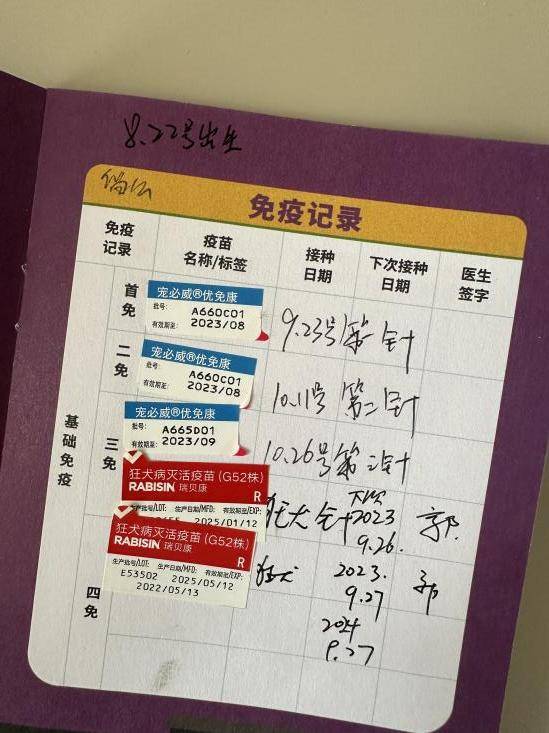 8.22号出生
免疫记录
免疫记录
疫苗名称/标签
接种日期
下次接种日期
医生签字
基础免疫
首免
宠必威®优免康
批号: A660C01
有效期至: 2023/08
9.23号第一针
二免
宠必威®优免康
批号: A660C01
有效期至: 2023/08
10.11号 第二针
三免
宠必威®优免康
批号: A665D01
有效期至: 2023/09
10.26号第三针
狂犬病灭活疫苗(G52株)
RABISIN 瑞贝康
R
生产批号/LOT: 生产日期/MFD: 有效期至/EXP:
2025/01/12
狂犬针
下次
2023
9.26.
郭
狂犬病灭活疫苗(G52株)
RABISIN 瑞贝康
R
生产批号/LOT: 生产日期/MFD: 有效期至/EXP:
E53502 2025/05/12
2022/05/13
四免
狂犬
2023.
9.27
郭
2024
9.27